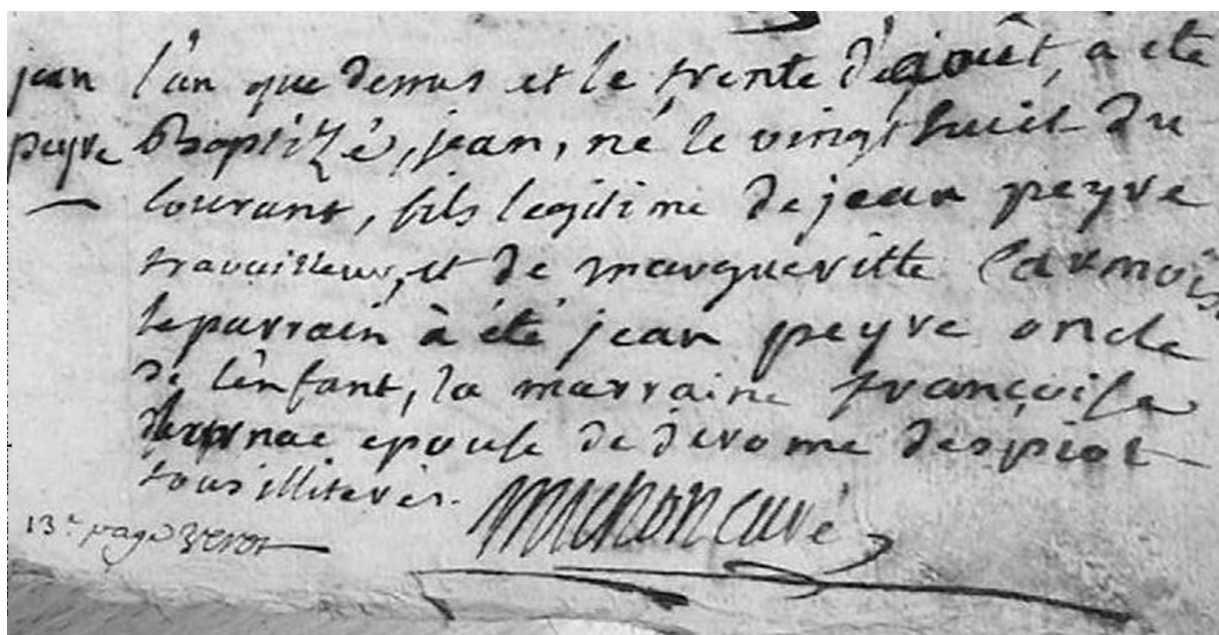 jean l'an que dessus et le trente d'août, a été
peyre Baptizé, jean, né le vingt huit du
courant, fils legitime de jean peyre
travailleur, et de margueritte
le parrain à été jean peyre oncle
de l'enfant, la marraine françoise
epouse de despiot
tous illiterés. michon curé
13.e page